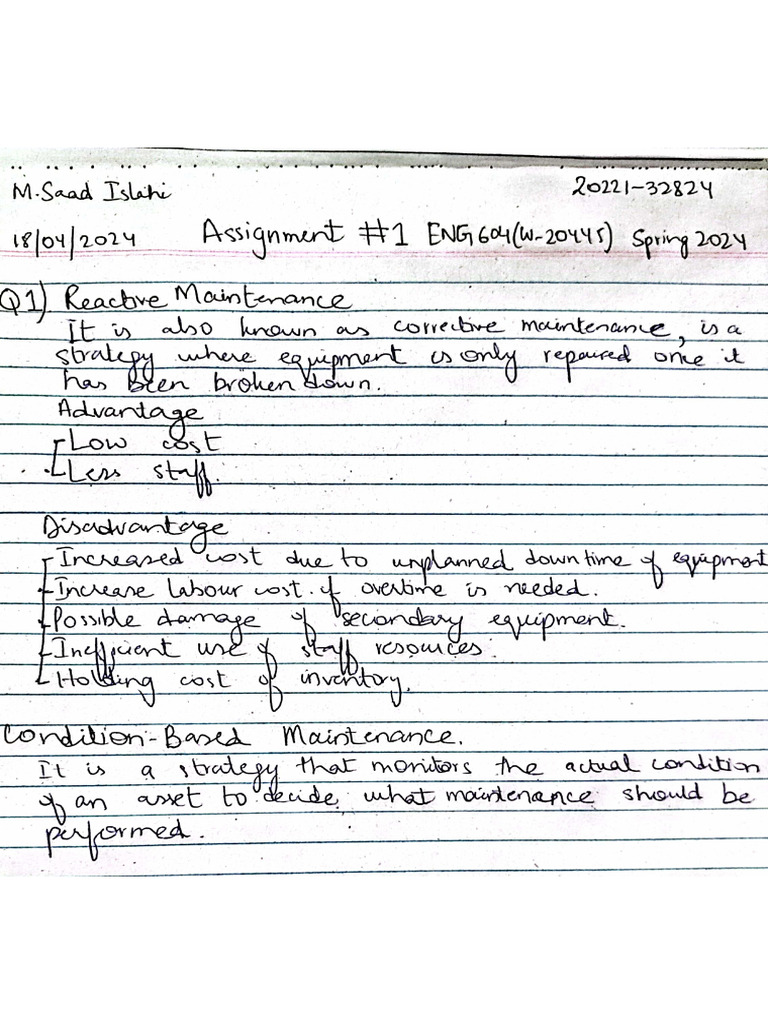 M.Saad Islahi 20221-32824
18/04/2024 Assignment #1 ENG604(W-20445) Spring 2024
Q1) Reactive Maintenance
It is also known as corrective maintenance, is a
strategy where equipment is only repaired once it
has been broken down.
Advantage
Low cost
Less staff.
Disadvantage
Increased cost due to unplanned down time of equipment
Increase labour cost if overtime is needed.
Possible damage of secondary equipment.
Inefficient use of staff resources.
Holding cost of inventory.
Condition-Based Maintenance.
It is a strategy that monitors the actual condition
of an asset to decide what maintenance should be
performed.